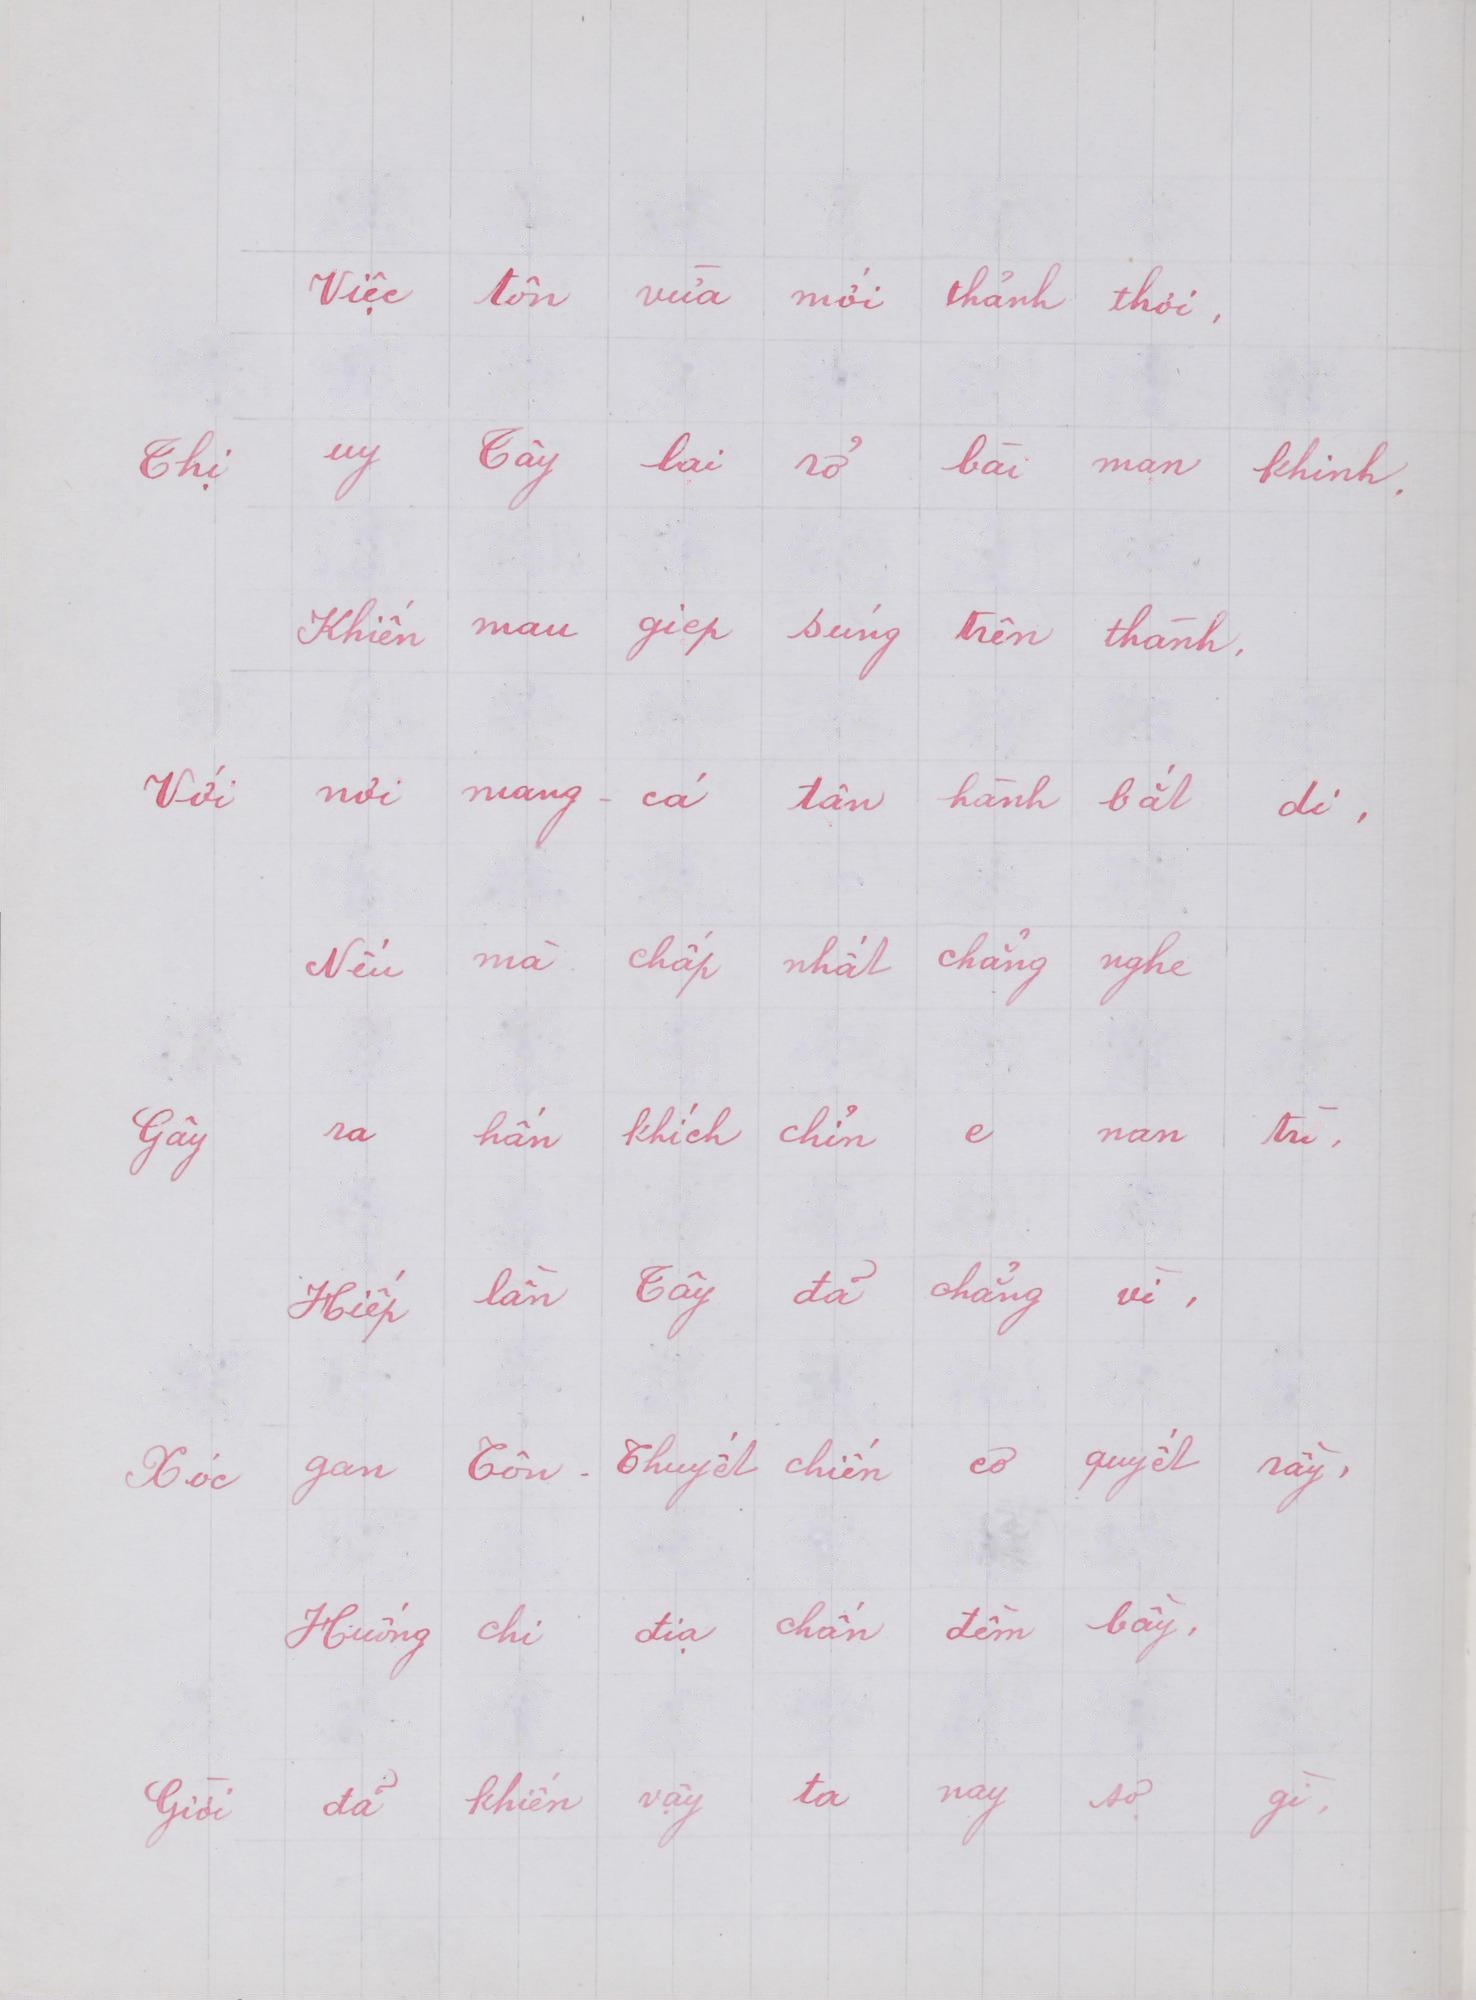 Việc tôn vừa mới thảnh thơi,
Thị uy Tây lại rở bài mạn khinh.
Khiến mau giẹp súng trên thành,
Với nơi mang-cá tân hành bắt di,
Nếu mà chấp nhất chẳng nghe
Gây ra hấn khích chỉn e nan trì,
Hiếp lần Tây đả chẳng vì,
Xóc gan Tôn-Thuyết chiến cơ quyết rầy,
Huống chi địa chấn đềm bầy,
Giời đả khiến vậy ta nay sợ gì,